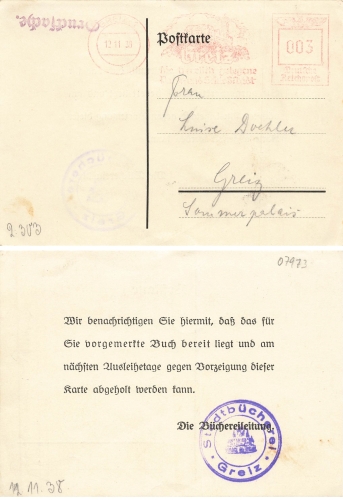 Drucksache.
Postkarte
003
Frau
Luise Doehler
Greiz
Sommerpalais
2.303
07973
Wir benachrichtigen Sie hiermit, daß das für
Sie vorgemerkte Buch bereit liegt und am
nächsten Ausleihetage gegen Vorzeigung dieser
Karte abgeholt werden kann.
Die Büchereileitung.
Stadtbücherei
Greiz
11.38